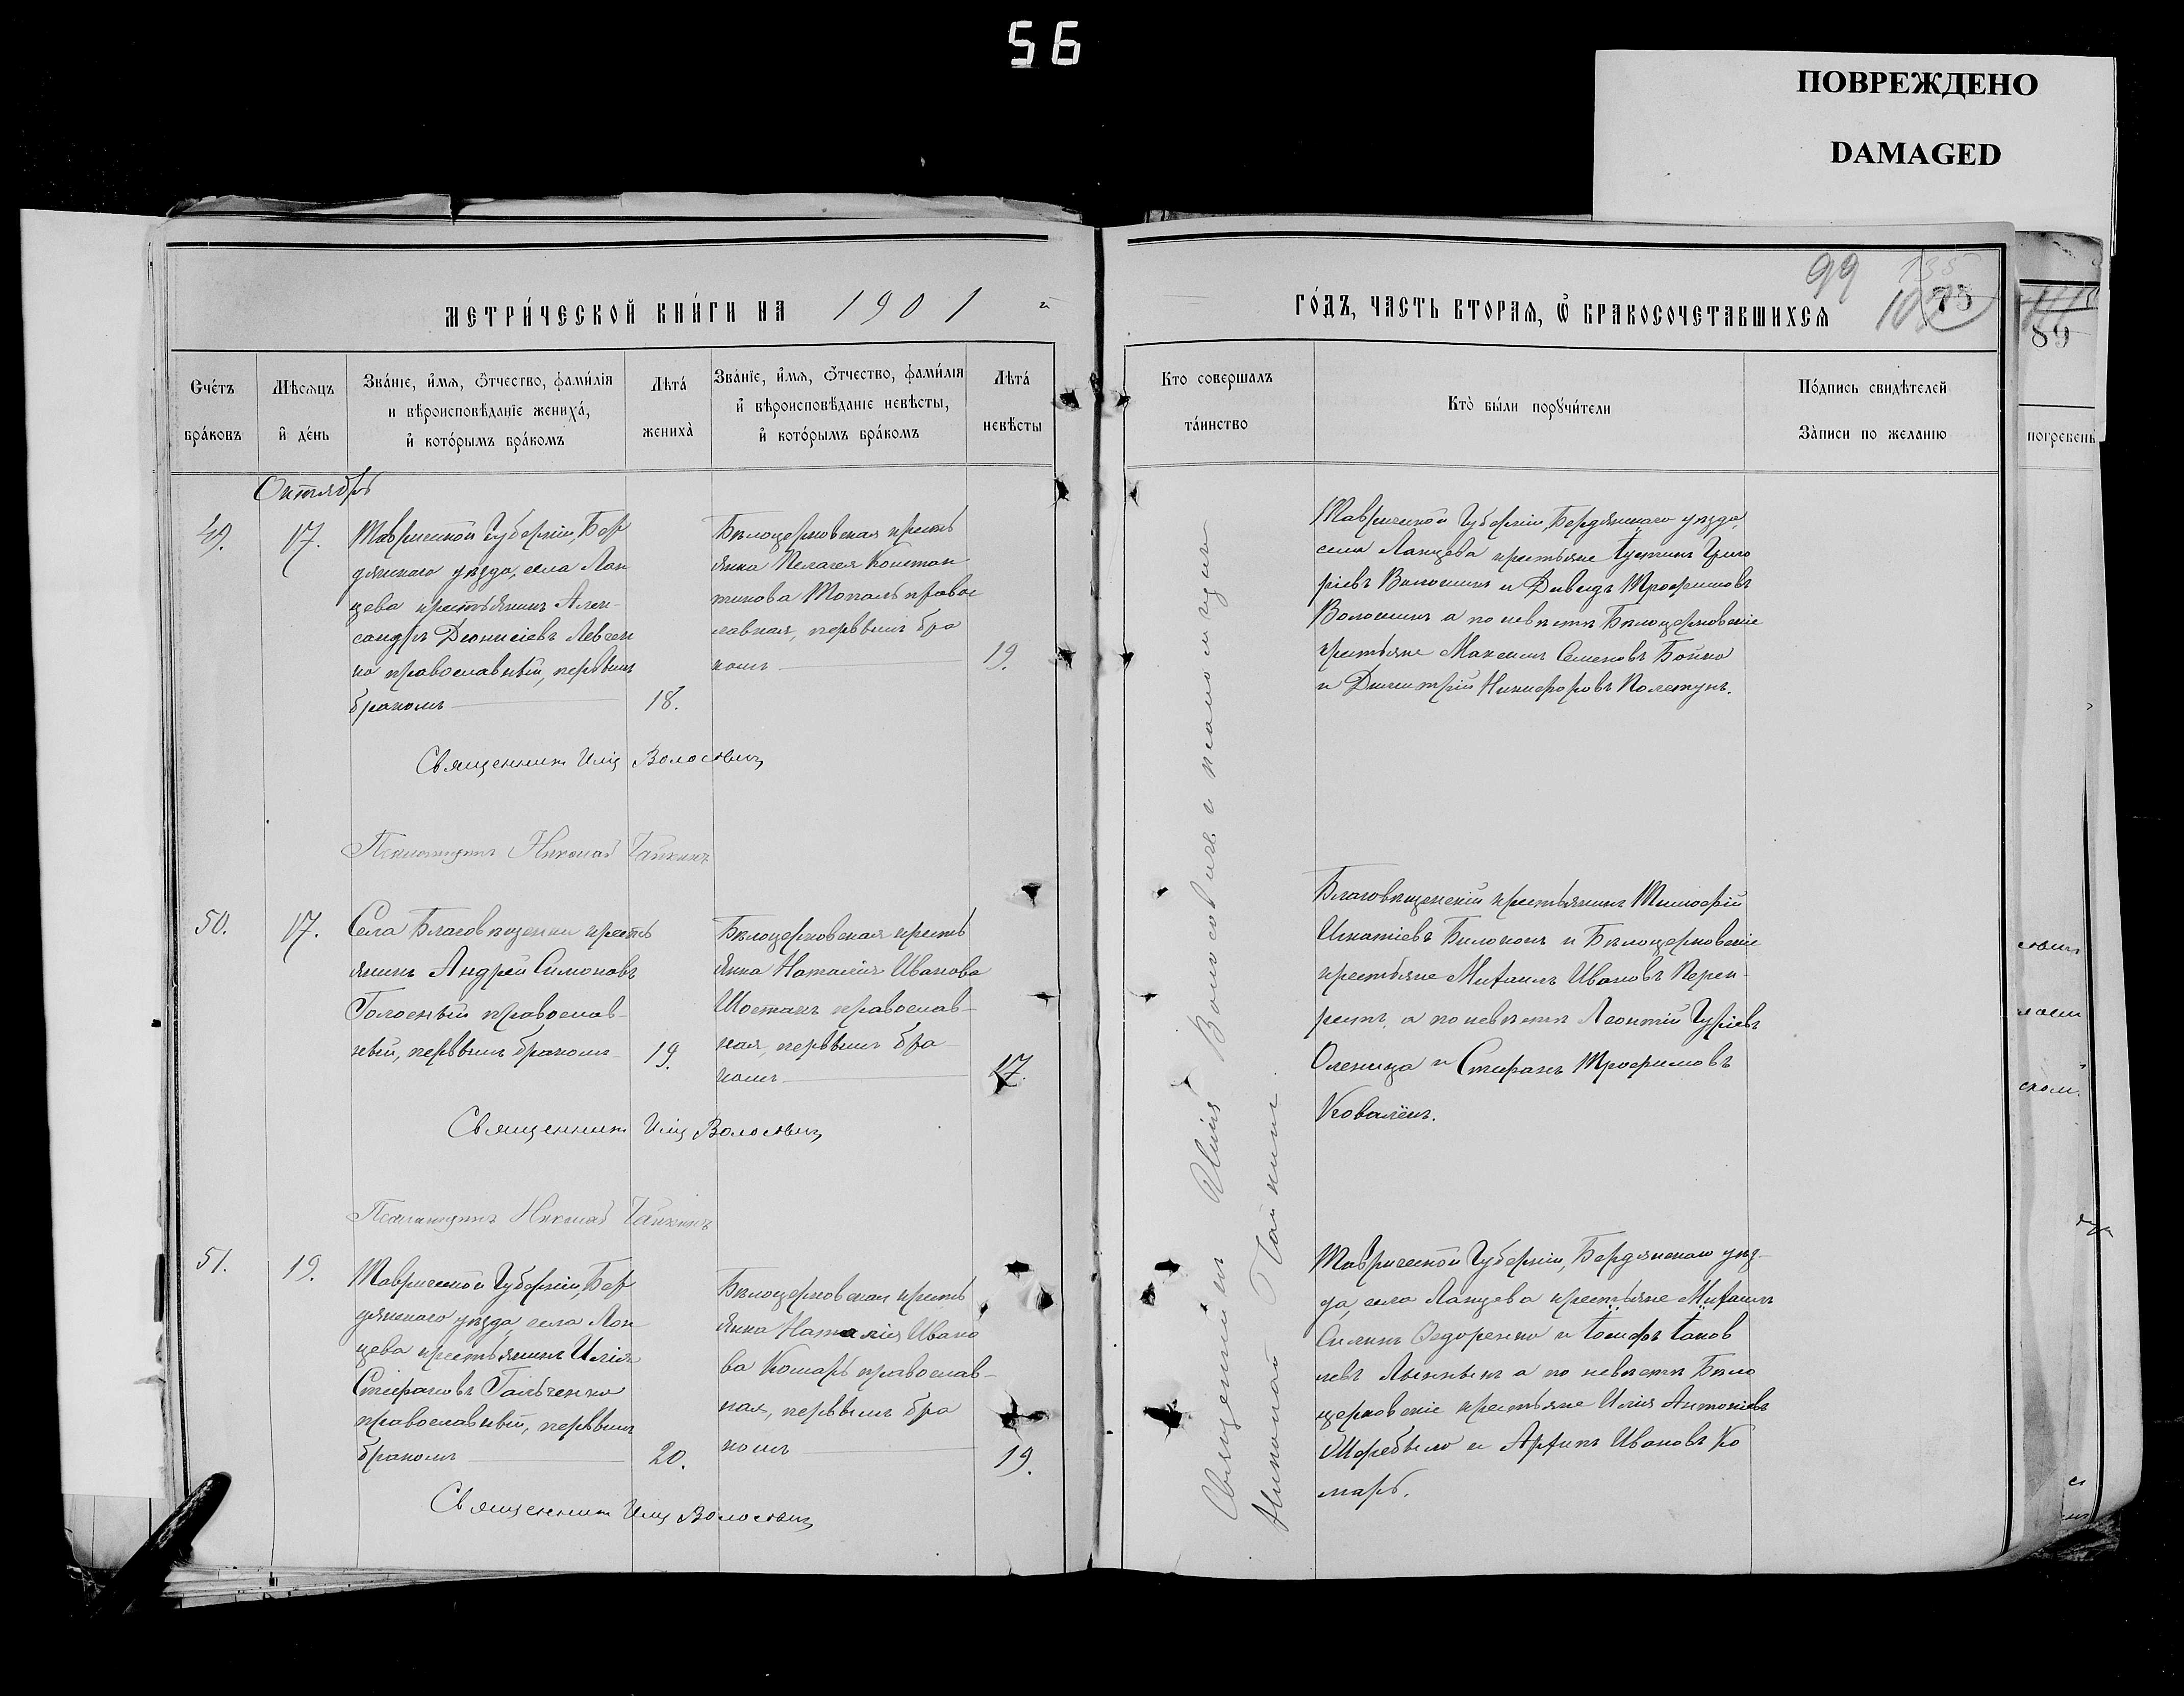 56
ПОВРЕЖДЕНО
DAMAGED
МЕТРИ́ЧЕСКОЙ КНИ́ГИ НА 1901
ГО́ДЪ, ЧАСТЬ ВТОРАѦ, Ѿ БРАКОСОЧЕТАВШИХСѦ
99
135
75
89
Счétъ бра́ковъ
Мѣсѧцъ и де́нь
Зва́нїе, и́мѧ, ѻ҆́тчество, фами́лїѧ
и вѣроисповѣ́данїе жениха́,
и҆ кото́рымъ бра́комъ
Лѣта́
жениха̀
Зва́нїе, и́мѧ, ѻ҆́тчество, фами́лїѧ
и҆ вѣроисповѣ́данїе невѣ́сты,
и҆ кото́рымъ бра́комъ
Лѣта́
невѣ́сты
Кто совершалъ
та́инство
Кто̀ бы́ли порꙋчи́тели
По́дпись свидѣ́телей
За́писи по желанїю
погребень
Октябрь
49.
17.
Таврической Губернiи, Бер
дянскаго уѣзда, села Лан
цева крестьянинъ Алек-
сандръ Дiонисiевъ Левчен
ко православный, первымъ
бракомъ
18.
Бѣлоцерковская кресть
янка Пелагея Констан
тинова Топаль правос
лавная, первымъ бра
комъ
19.
Таврической Губернiи, Бердянскаго уѣзда,
села Ланцева крестьяне Iустинъ Григо
рiевъ Волошинъ и Давидъ Трофимовъ
Волошинъ а по невѣстѣ Бѣлоцерковскiе
крестьяне Максимъ Семеновъ Бойко
и Димитрiй Никифоровъ Полетунъ.
Священникъ Илiя Волосовичъ
Псаломщикъ Николай Гайкинъ
50.
17.
Села Благовѣщенки кресть
янинъ Андрей Симоновъ
Голосный православ-
ный, первымъ бракомъ
19.
Бѣлоцерковская кресть
янка Наталiя Иванова
Шостакъ православ-
ная, первымъ бра
комъ
17.
Благовѣщенскiй крестьянинъ Тимофiй
Игнатiевъ Билоконъ и Бѣлоцерковскiе
крестьяне Михаилъ Ивановъ Перек-
рестъ, а по невѣстѣ Леонтiй Гурiевъ
Оленица и Стефанъ Трофимовъ
Ковалёкъ.
Священникъ Илiя Волосовичъ
Псаломщикъ Николай Гайкинъ
51.
19.
Таврической Губернiи, Бер
дянскаго уѣзда, села Лан-
цева крестьянинъ Илiя
Стефановъ Гальченко
православный, первымъ
бракомъ
20.
Бѣлоцерковская кресть
янка Наталiя Ивано
ва Комарь православ-
ная, первымъ бра
комъ
19.
Таврической Губернiи, Бердянскаго уѣз-
да, села Ланцева крестьяне Михаилъ
Силинъ Федоренко и Iосифъ Iаков
левъ а по невѣстѣ Бѣло
церковскiе крестьяне Илiя Антонiевъ
и Архипъ Ивановъ Ко
марь.
Священникъ Илiя Волосовичъ
Священникъ Илiя Волосовичъ с псаломщикомъ
Николаемъ Гайкинымъ.